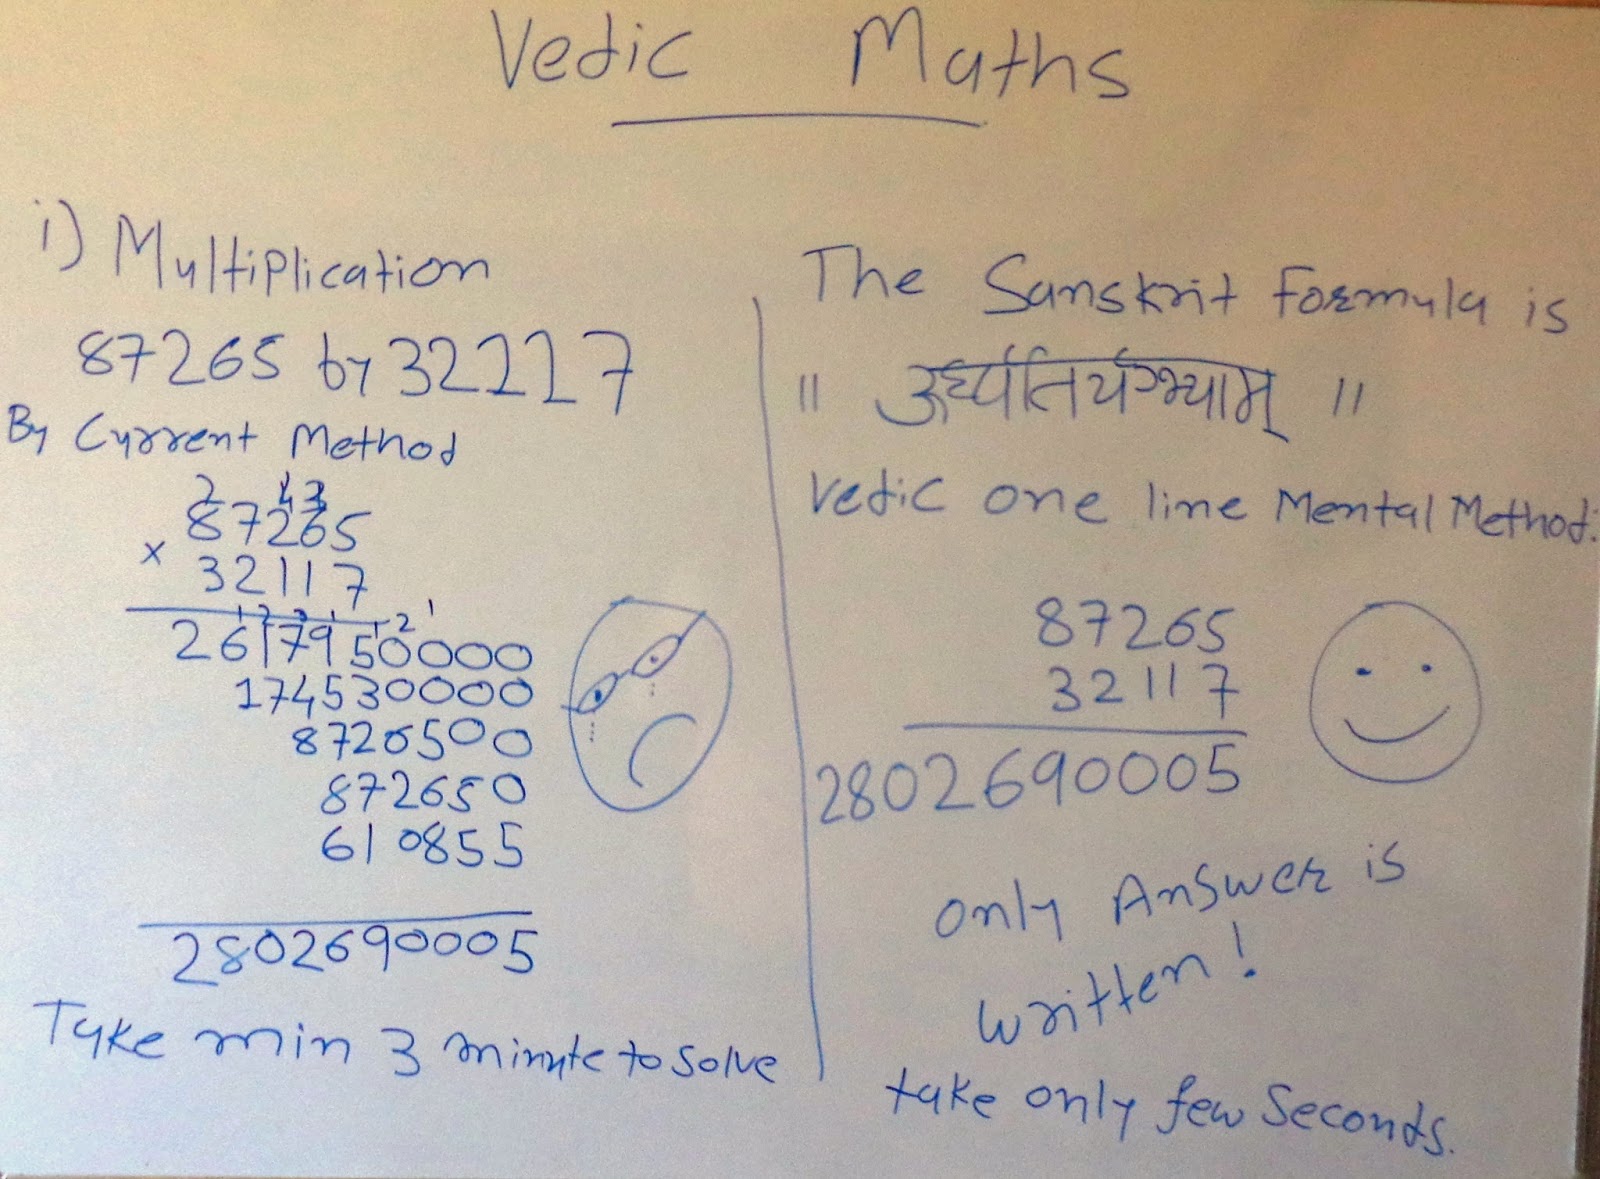 Vedic Maths
i) Multiplication
87265 by 32117
By Current Method
2 1 3
87265
x 32117
2617950000
174530000
8726500
872650
610855
2802690005
Take min 3 minute to solve
The Sanskrit Formula is
" ऊर्ध्वतिर्यग्भ्याम् "
Vedic one line Mental Method:
87265
32117
2802690005
only Answer is
written!
take only few Seconds.